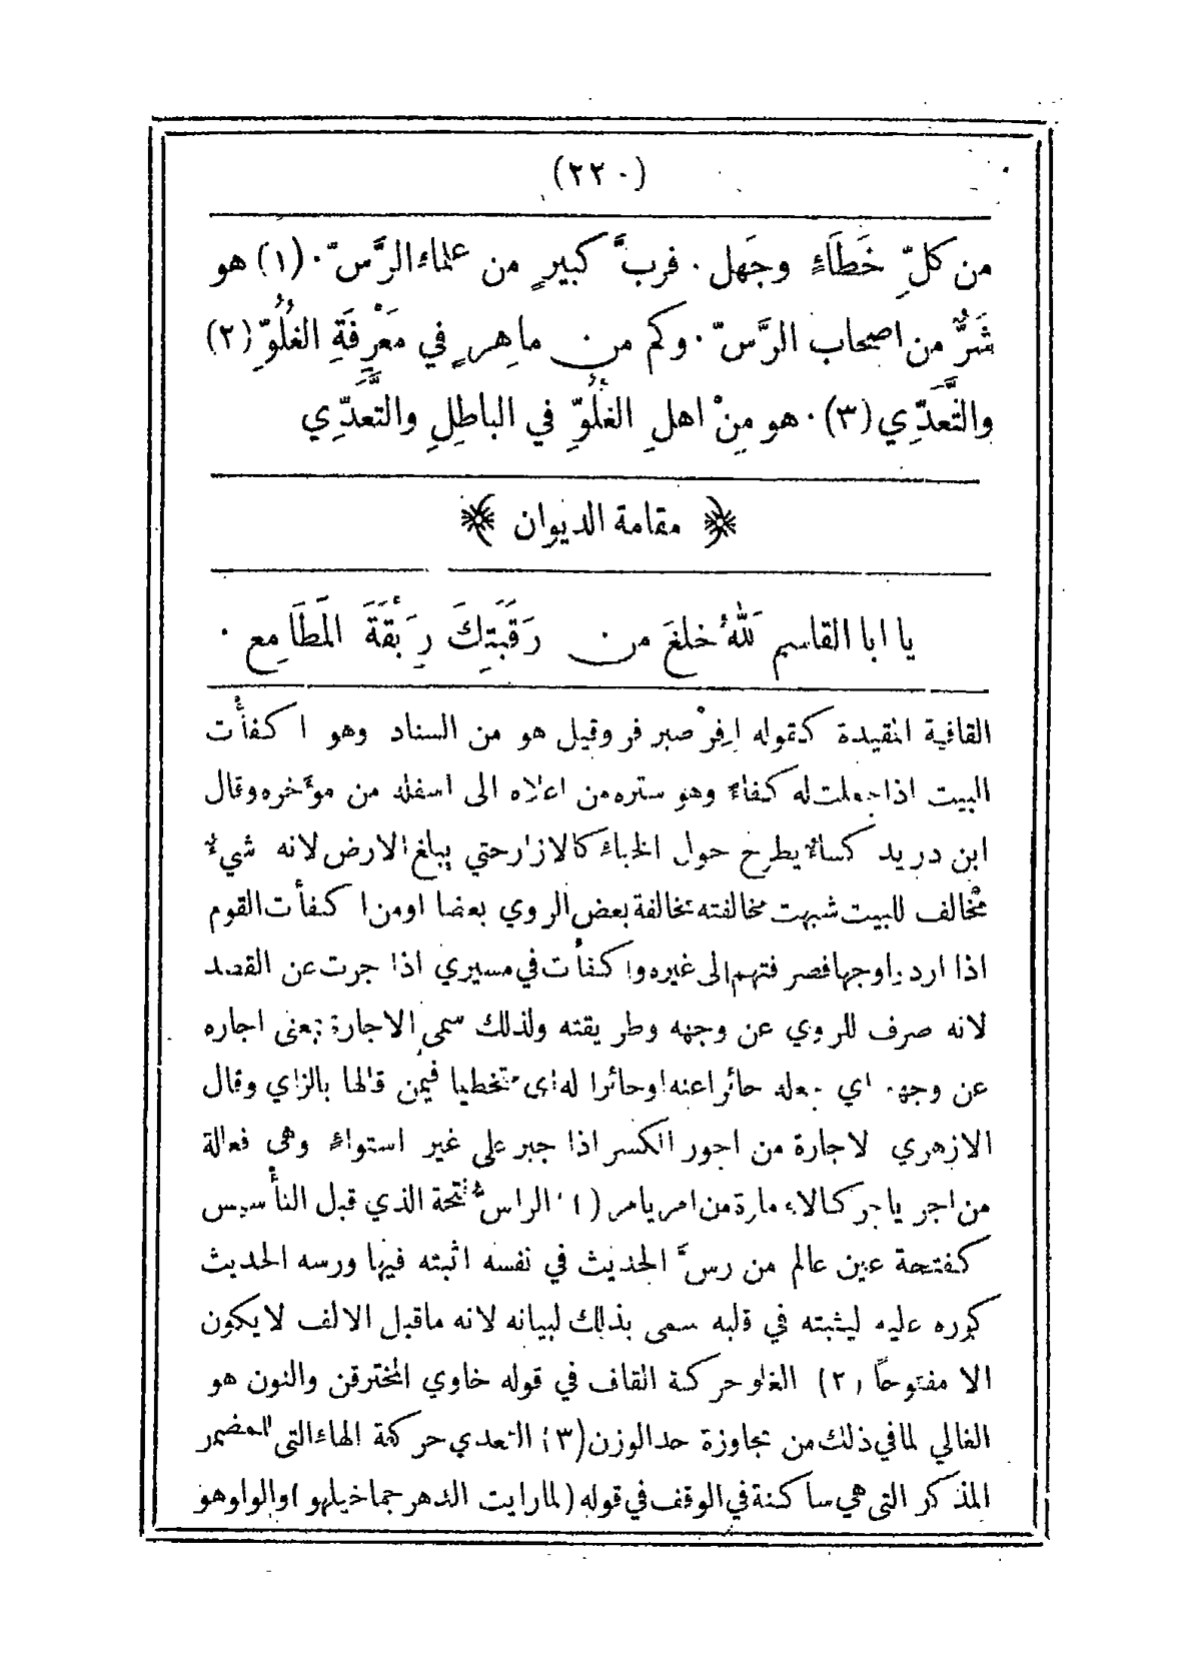 (٢٢٠)
من كلِّ خَطَاءٍ وجَهل . فربَّ كبيرٍ من علماء الرَّسّ . (١) هو
شَرٌّ من اصحاب الرَّسّ . وكم من ماهِرٍ في مَعْرِفَةِ الغُلُوِّ (٢)
والتَّعَدِّي (٣) . هو مِنْ اهلِ الغُلُوِّ في الباطِلِ والتَّعَدِّي
﴿ مقامة الديوان ﴾
يا ابا القاسم لَلّٰهُ خلعَ من رَقَبَتِكَ رِبْقَةَ المَطَامِع .
القافية المقيدة كقوله افِرْ صبر فر وقيل هو من السناد وهو اكفأت
البيت اذا جعلت له كفاءً وهو ستره من اعلاه الى اسفله من مؤخره وقال
ابن دريد كساءٌ يطرح حول الخباء كالازار حتي يبلغ الارض لانه شيءٌ
مخالف للبيت شبهت مخالفته بمخالفة بعض الروي بعضا او من اكفأت القوم
اذا ارد وا وجها فصرفتهم الى غيره واكفأت في مسيري اذا جرت عن القصد
لانه صرف للروي عن وجهه وطريقته ولذلك سمى الاجارة بمعنى اجاره
عن وجهه اي جعله حائرا عنه او حائرا له اى متخطيا فيمن قالها بالزاي وقال
الازهري لاجارة من اجور الكسر اذا جبر على غير استواءٍ وهى فعالة
من اجر ياجر كالامارة من امر يامر (١) الراس فتحة الذي قبل التأسيس
كفتحة عين عالم من رسَّ الحديث في نفسه اثبته فيها ورسه الحديث
كرره عليه ليثبته في قلبه سمى بذلك لبيانه لانه ماقبل الالف لايكون
الا مفتوحاً (٢) الغلو حركة القاف في قوله خاوي المخترقن والنون هو
الغالي لمافي ذلك من تجاوزة حد الوزن (٣) التعدي حركة الهاء التى للمضمر
المذكر التى هي ساكنة في الوقف في قوله (لما رايت الدهر جما خيلهو) والواو هو